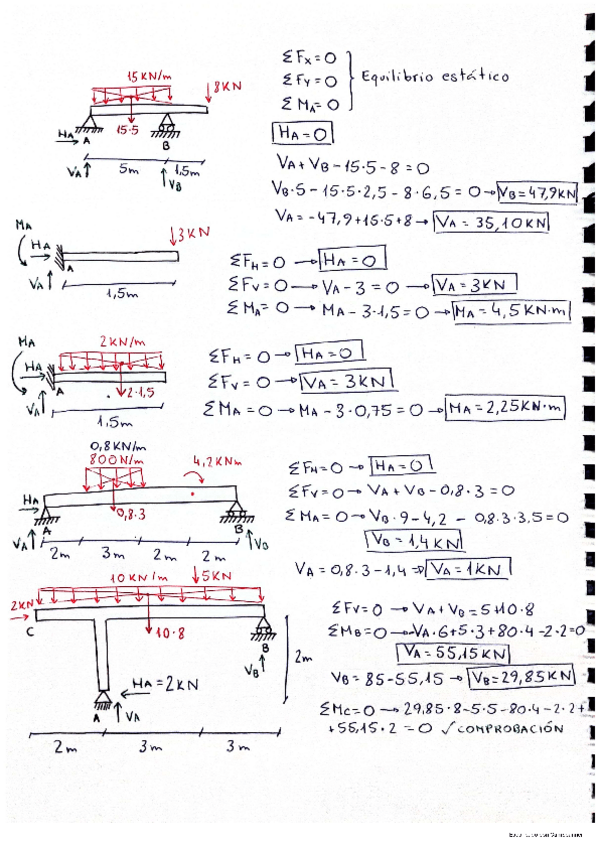 ΣFx = 0
ΣFy = 0
ΣMA = 0
Equilibrio estático
15 KN/m
8KN
15·5
HA
A
B
VA
5m
VB
1,5m
HA = 0
VA + VB - 15·5 - 8 = 0
VB·5 - 15·5·2,5 - 8·6,5 = 0 → VB = 47,9KN
VA = -47,9 + 15·5 + 8 → VA = 35,10KN
MA
3KN
HA
A
VA
1,5m
ΣFH = 0 → HA = 0
ΣFV = 0 → VA - 3 = 0 → VA = 3KN
ΣMA = 0 → MA - 3·1,5 = 0 → MA = 4,5 KN·m
MA
2KN/m
HA
A
2·1,5
VA
1,5m
ΣFH = 0 → HA = 0
ΣFV = 0 → VA = 3KN
ΣMA = 0 → MA - 3·0,75 = 0 → MA = 2,25KN·m
0,8KN/m
800N/m
4,2KNm
HA
0,8·3
A
B
VA
VB
2m 3m 2m 2m
ΣFH = 0 → HA = 0
ΣFV = 0 → VA + VB - 0,8·3 = 0
ΣMA = 0 → VB·9 - 4,2 - 0,8·3·3,5 = 0
VB = 1,4KN
VA = 0,8·3 - 1,4 → VA = 1KN
10KN/m
5KN
2KN
C
10·8
B
VB
2m
HA = 2KN
A
VA
2m 3m 3m
ΣFV = 0 → VA + VB = 5 + 10·8
ΣMB = 0 → -VA·6 + 5·3 + 80·4 - 2·2 = 0
VA = 55,15KN
VB = 85 - 55,15 → VB = 29,85KN
ΣMC = 0 → 29,85·8 - 5·5 - 80·4 - 2·2 +
+ 55,15·2 = 0 ✓ COMPROBACIÓN